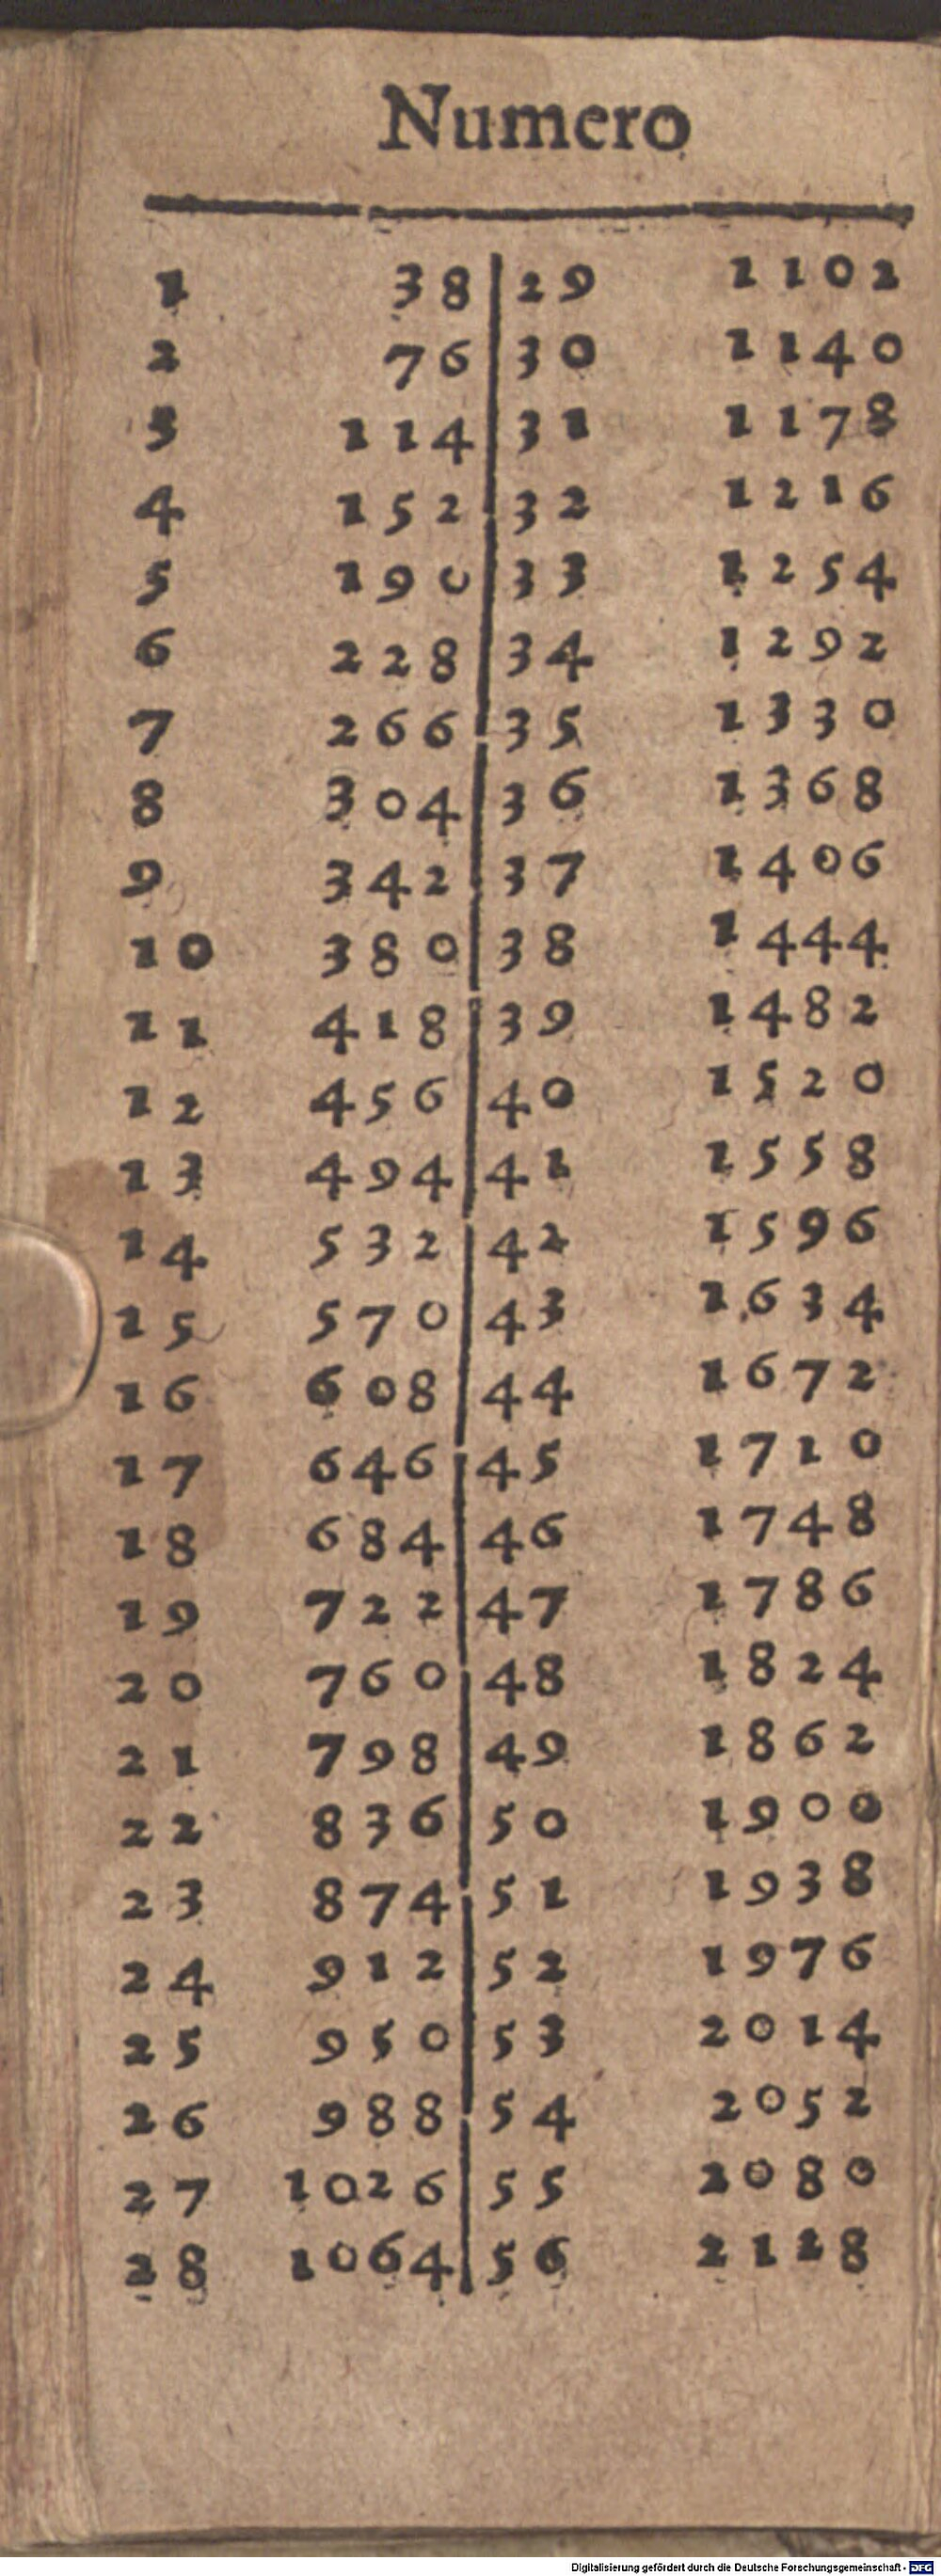 Numero
1 38 29 1102
2 76 30 1140
3 114 31 1178
4 152 32 1216
5 190 33 1254
6 228 34 1292
7 266 35 1330
8 304 36 1368
9 342 37 1406
10 380 38 1444
11 418 39 1482
12 456 40 1520
13 494 41 1558
14 532 42 1596
15 570 43 1634
16 608 44 1672
17 646 45 1710
18 684 46 1748
19 722 47 1786
20 760 48 1824
21 798 49 1862
22 836 50 1900
23 874 51 1938
24 912 52 1976
25 950 53 2014
26 988 54 2052
27 1026 55 2080
28 1064 56 2128
Digitalisierung gefördert durch die Deutsche Forschungsgemeinschaft - DFG